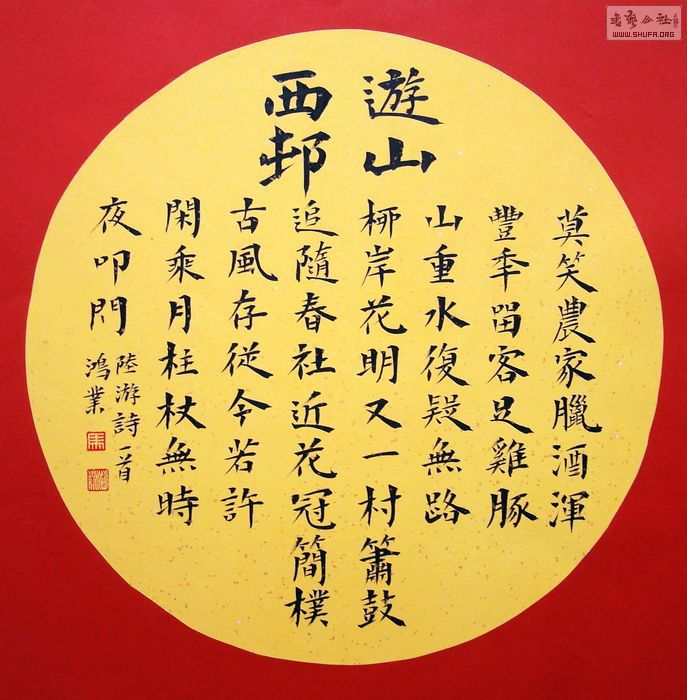 遊山
西邨
莫笑農家臘酒渾
豐秊畱客足雞豚
山重水復疑無路
柳岸花明又一村簫鼓
追隨春社近花冠簡樸
古風存従今若許
閑乘月柱杖無時
夜叩門
陸游詩一首
鴻業
書藝公社
WWW.SHUFA.ORG